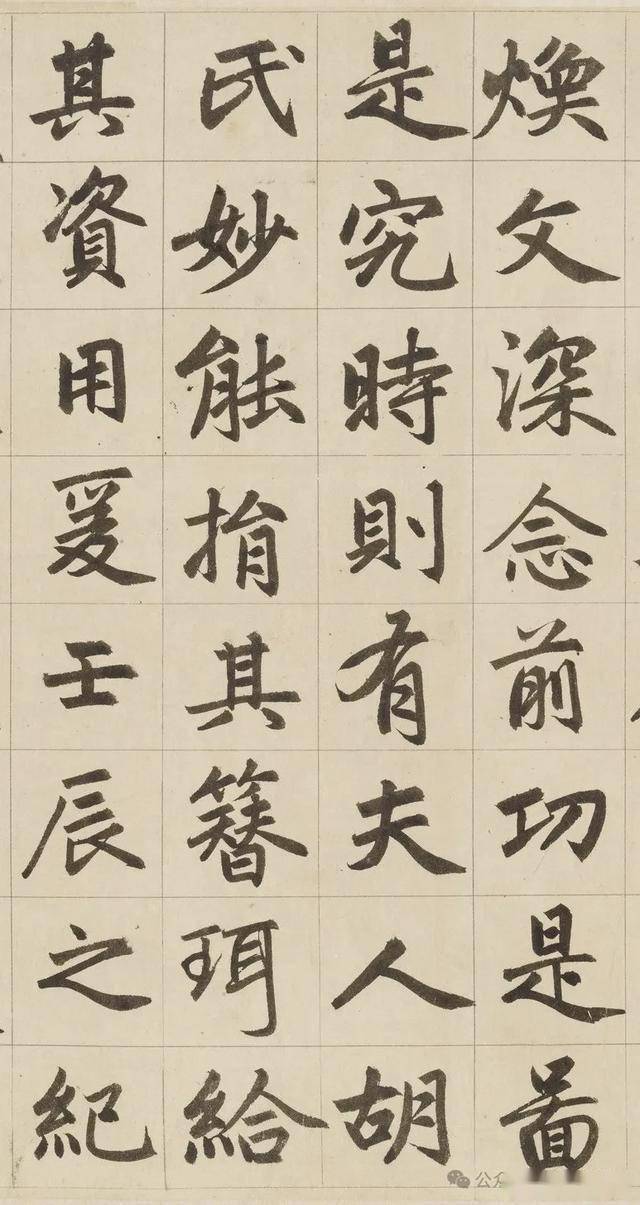 煥文深念前功是啚
是究時則有夫人胡
氏妙能揹其簪珥給
其資用爰壬辰之紀
公众